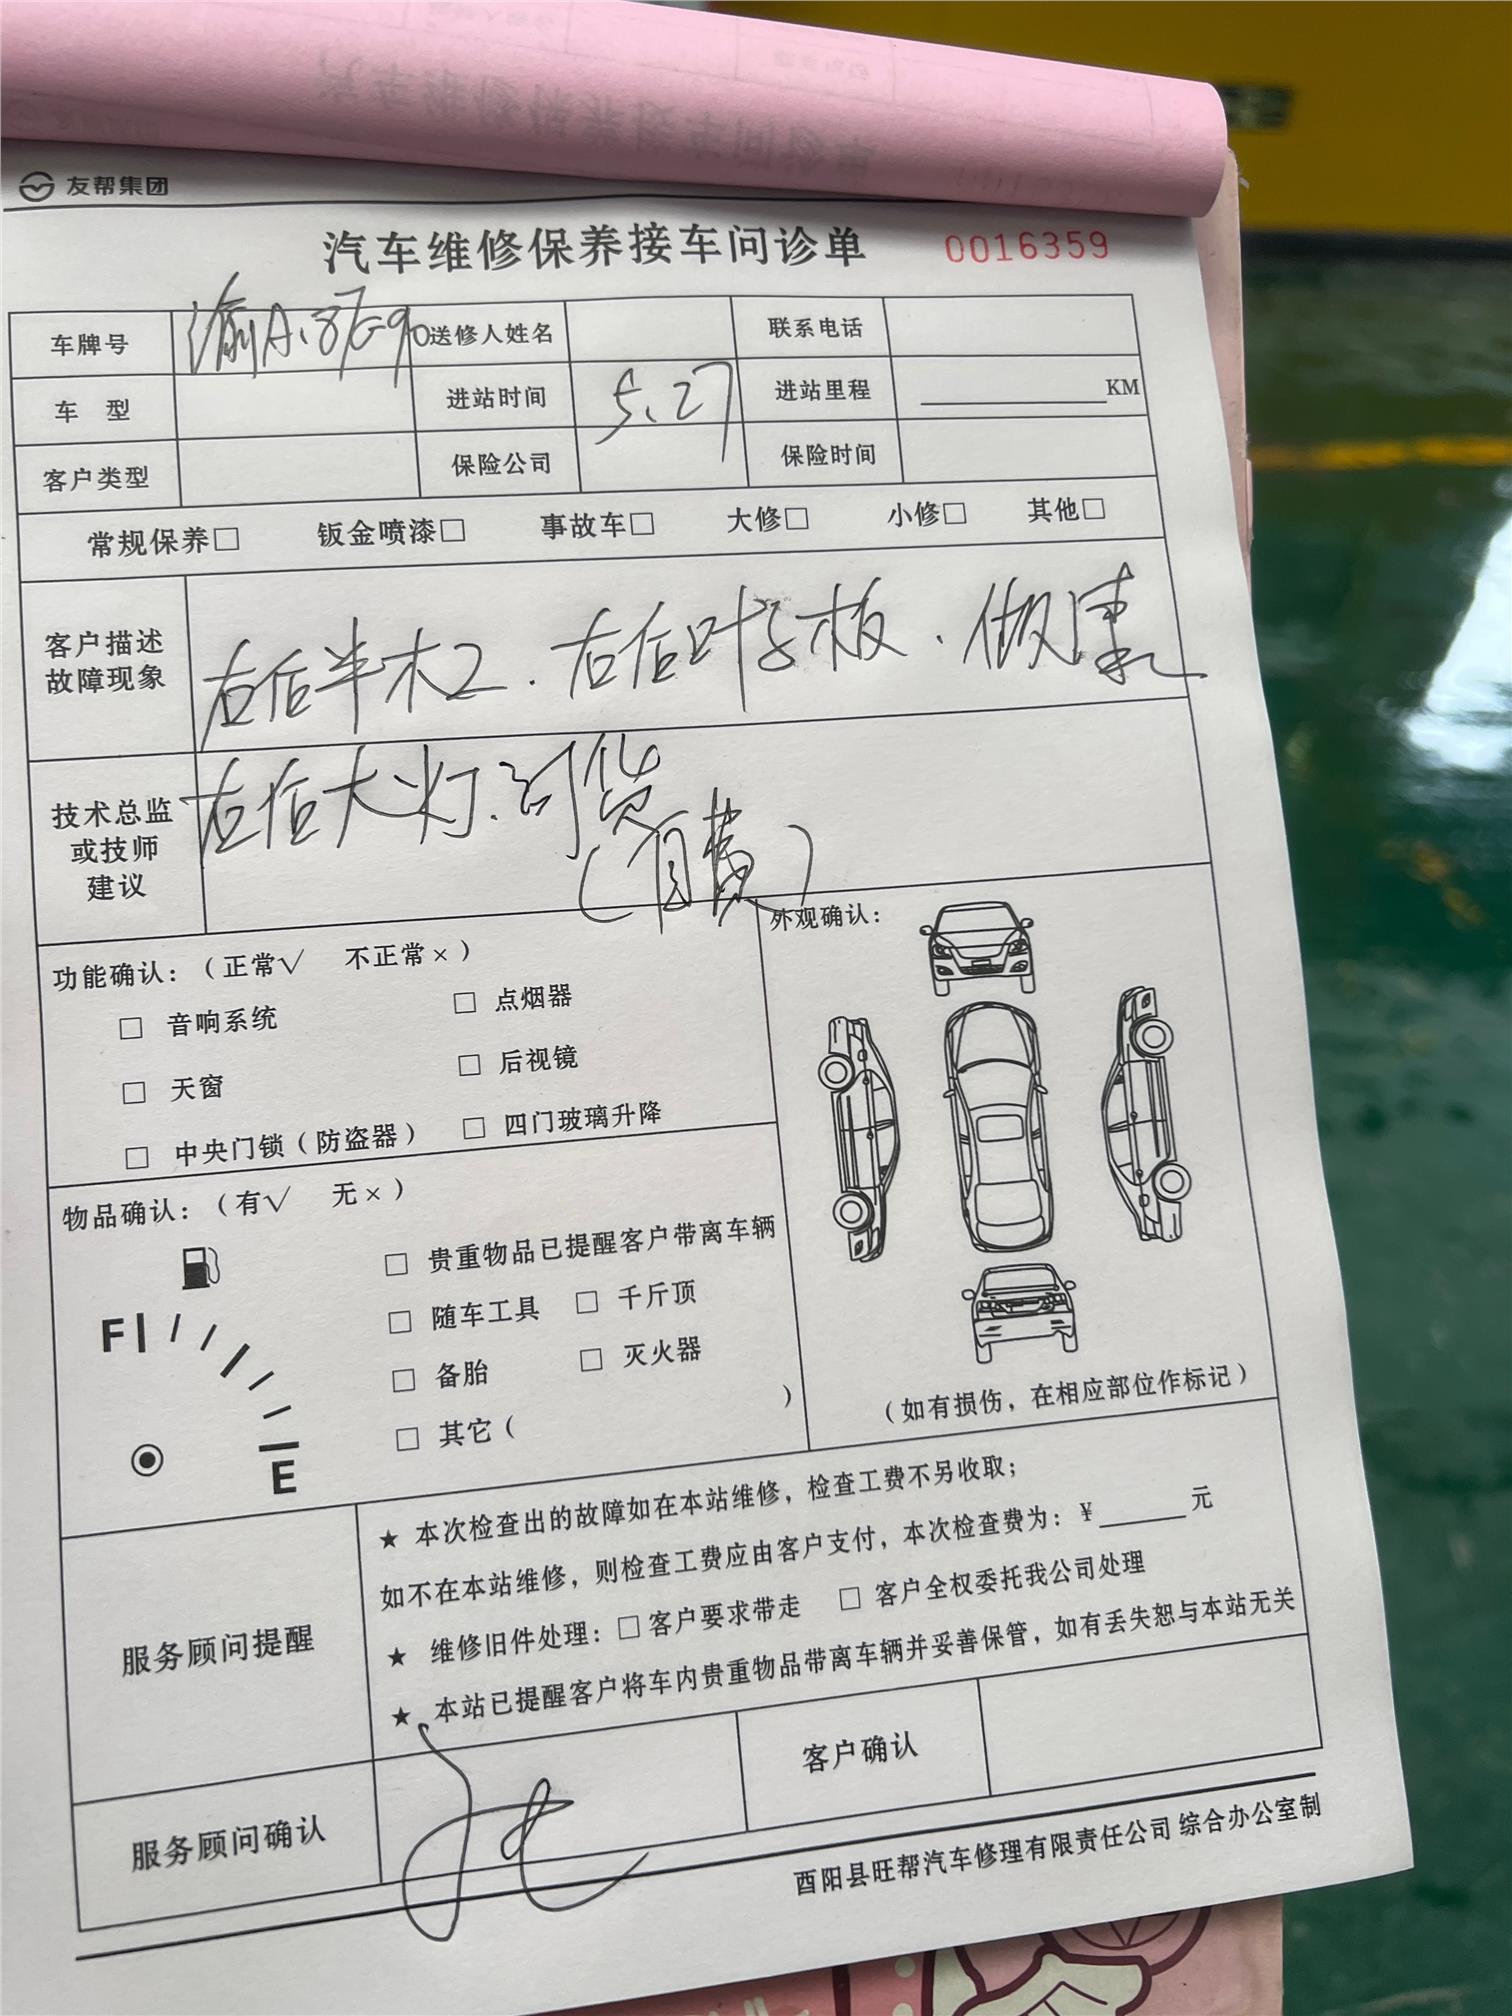 友帮集团
汽车维修保养接车问诊单 0016359
车牌号 送修人姓名 联系电话
车 型 进站时间 5.27 进站里程 KM
客户类型 保险公司 保险时间
常规保养□ 钣金喷漆□ 事故车□ 大修□ 小修□ 其他□
客户描述
故障现象
右后半杠.右后叶子板.做漆
技术总监
或技师
建议
右后大灯.订货
(自费)
功能确认:(正常√ 不正常×)
□ 音响系统 □ 点烟器
□ 天窗 □ 后视镜
□ 中央门锁(防盗器) □ 四门玻璃升降
外观确认:
(如有损伤,在相应部位作标记)
物品确认:(有√ 无×)
F
E
□ 贵重物品已提醒客户带离车辆
□ 随车工具 □ 千斤顶
□ 备胎 □ 灭火器
□ 其它( )
服务顾问提醒
★ 本次检查出的故障如在本站维修,检查工费不另收取;
如不在本站维修,则检查工费应由客户支付,本次检查费为:¥______元
★ 维修旧件处理:□客户要求带走 □ 客户全权委托我公司处理
★ 本站已提醒客户将车内贵重物品带离车辆并妥善保管,如有丢失恕与本站无关
服务顾问确认 客户确认
酉阳县旺帮汽车修理有限责任公司 综合办公室制